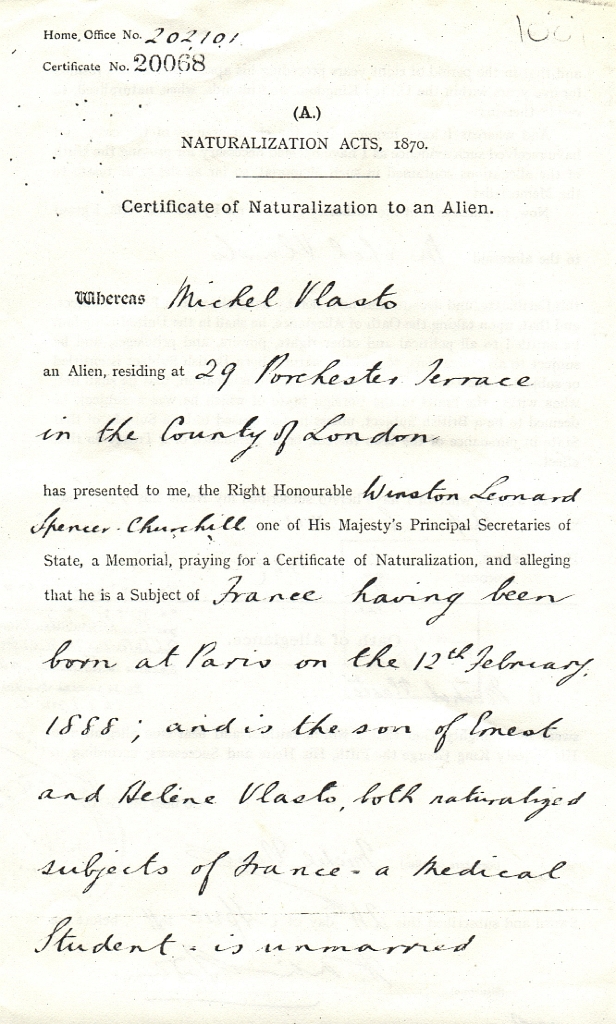 Home Office No. 202101
Certificate No. 20068
(A.)
NATURALIZATION ACTS, 1870.
Certificate of Naturalization to an Alien.
Whereas Michel Vlasto
an Alien, residing at 29 Porchester Terrace
in the County of London
has presented to me, the Right Honourable Winston Leonard
Spencer-Churchill one of His Majesty's Principal Secretaries of
State, a Memorial, praying for a Certificate of Naturalization, and alleging
that he is a Subject of France having been
born at Paris on the 12th February,
1888; and is the son of Ernest
and Helène Vlasto, both naturalized
subjects of France - a Medical
Student - is unmarried